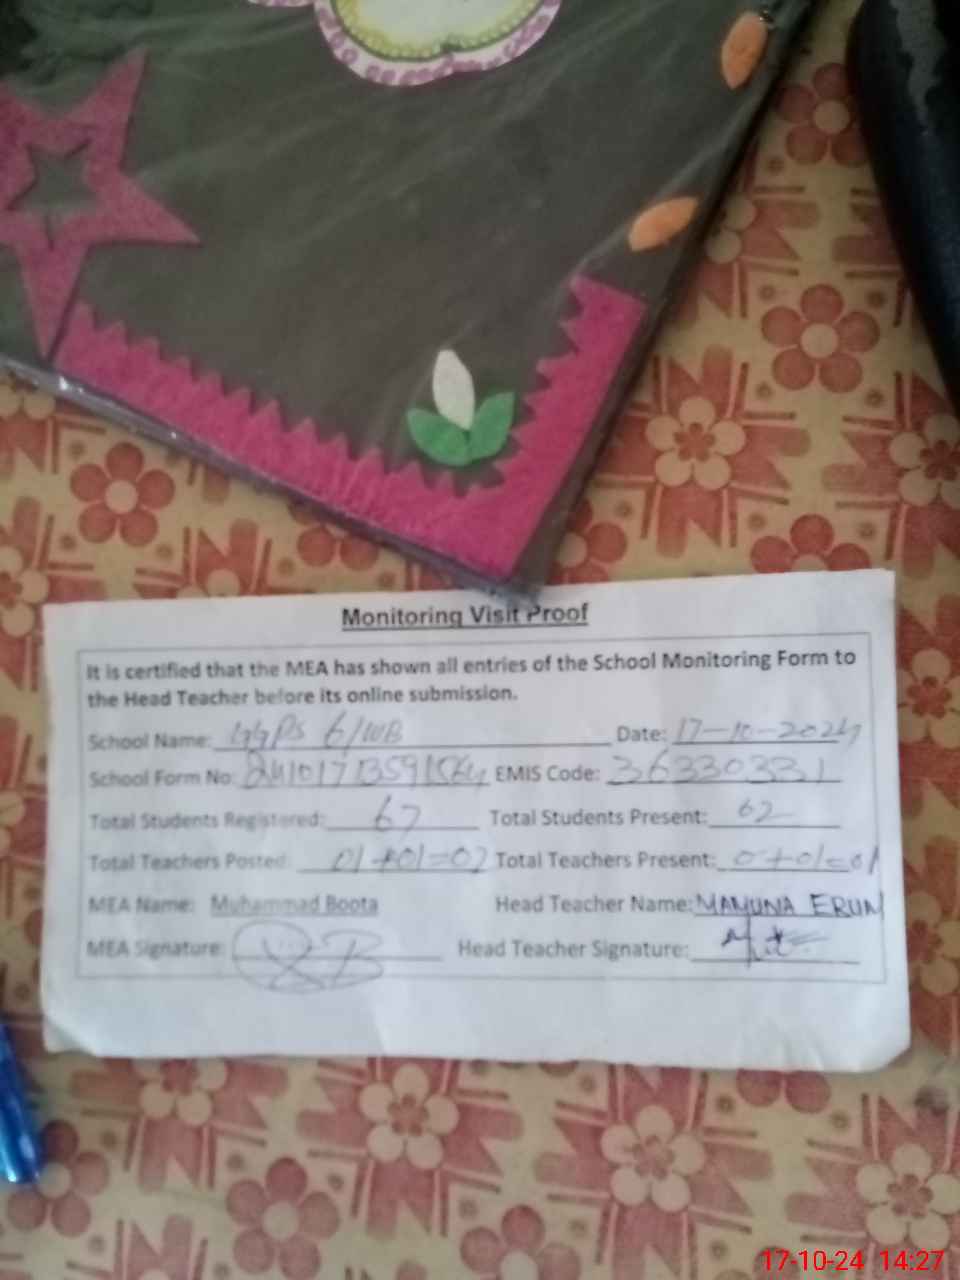 Monitoring Visit Proof
It is certified that the MEA has shown all entries of the School Monitoring Form to
the Head Teacher before its online submission.
School Name: GGPS 6/WB Date: 17-10-2024
School Form No: EMIS Code: 36330331
Total Students Registered: 67 Total Students Present: 62
Total Teachers Posted: 01+01=02 Total Teachers Present: 0+01=01
MEA Name: Muhammad Boota Head Teacher Name: MAMUNA ERUM
MEA Signature: Head Teacher Signature:
17-10-24 14:27